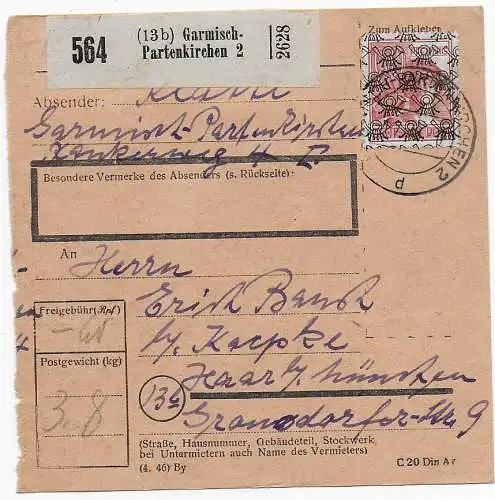 564
(13b) Garmisch-
Partenkirchen 2
2628
Zum Aufkleben
Absender:
Garmisch-Partenkirchen
Besondere Vermerke des Absenders (s. Rückseite):
KIRCHEN 2
d
An
Herrn
Freigebühr (Rpf)
Erich
Postgewicht (kg)
b/. Koepke
3,8
Haar b/. München
13b
Gronsdorfer-Str. 9
(Straße, Hausnummer, Gebäudeteil, Stockwerk,
bei Untermietern auch Name des Vermieters)
(4. 46) By
C 20 Din A